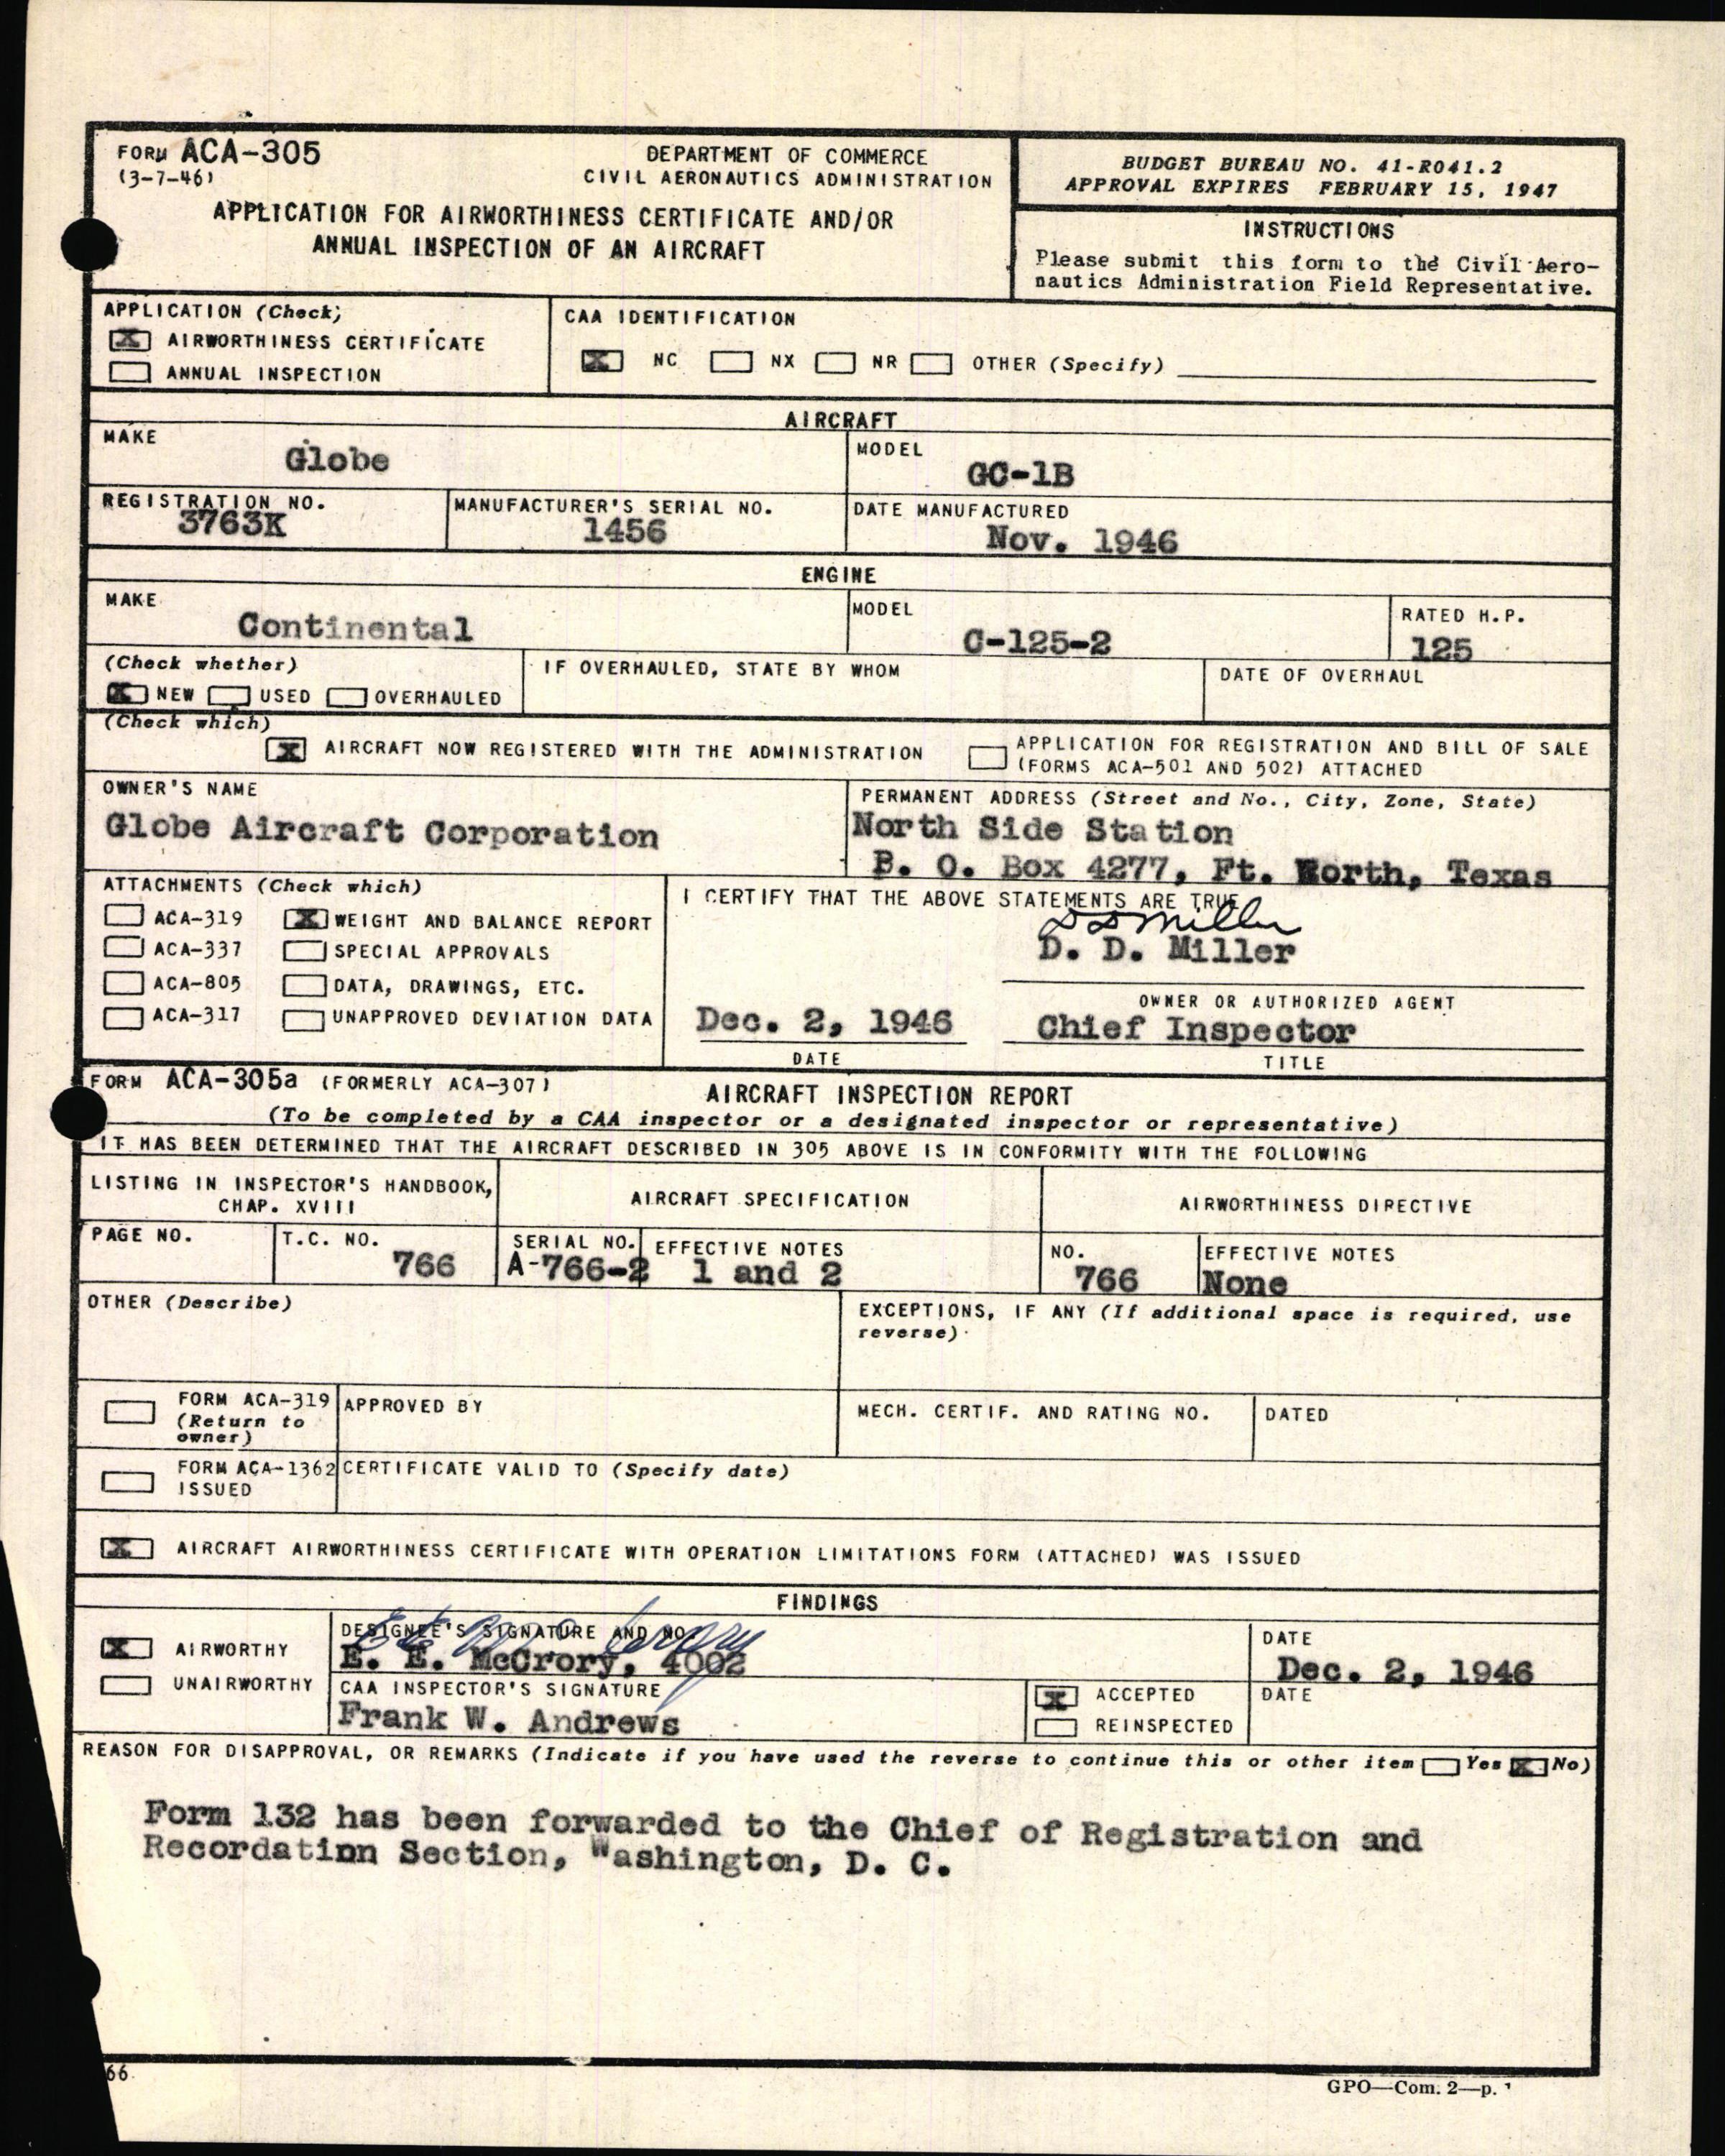 FORM ACA-305
(3-7-46)
DEPARTMENT OF COMMERCE
CIVIL AERONAUTICS ADMINISTRATION
APPLICATION FOR AIRWORTHINESS CERTIFICATE AND/OR
ANNUAL INSPECTION OF AN AIRCRAFT
BUDGET BUREAU NO. 41-R041.2
APPROVAL EXPIRES FEBRUARY 15, 1947
INSTRUCTIONS
Please submit this form to the Civil Aero-
nautics Administration Field Representative.
APPLICATION (Check)
X AIRWORTHINESS CERTIFICATE
ANNUAL INSPECTION
CAA IDENTIFICATION
X NC NX NR OTHER (Specify)
AIRCRAFT
MAKE
Globe
MODEL
GC-1B
REGISTRATION NO.
3763K
MANUFACTURER'S SERIAL NO.
1456
DATE MANUFACTURED
Nov. 1946
ENGINE
MAKE
Continental
MODEL
C-125-2
RATED H.P.
125
(Check whether)
X NEW USED OVERHAULED
IF OVERHAULED, STATE BY WHOM
DATE OF OVERHAUL
(Check which)
X AIRCRAFT NOW REGISTERED WITH THE ADMINISTRATION
APPLICATION FOR REGISTRATION AND BILL OF SALE
(FORMS ACA-501 AND 502) ATTACHED
OWNER'S NAME
Globe Aircraft Corporation
PERMANENT ADDRESS (Street and No., City, Zone, State)
North Side Station
P. O. Box 4277, Ft. Worth, Texas
ATTACHMENTS (Check which)
ACA-319 X WEIGHT AND BALANCE REPORT
ACA-337 SPECIAL APPROVALS
ACA-805 DATA, DRAWINGS, ETC.
ACA-317 UNAPPROVED DEVIATION DATA
I CERTIFY THAT THE ABOVE STATEMENTS ARE TRUE
D D Miller
D. D. Miller
OWNER OR AUTHORIZED AGENT
Dec. 2, 1946
DATE
Chief Inspector
TITLE
FORM ACA-305a (FORMERLY ACA-307)
AIRCRAFT INSPECTION REPORT
(To be completed by a CAA inspector or a designated inspector or representative)
IT HAS BEEN DETERMINED THAT THE AIRCRAFT DESCRIBED IN 305 ABOVE IS IN CONFORMITY WITH THE FOLLOWING
LISTING IN INSPECTOR'S HANDBOOK,
CHAP. XVIII
AIRCRAFT SPECIFICATION
AIRWORTHINESS DIRECTIVE
PAGE NO.
T.C. NO.
766
SERIAL NO.
A-766-2
EFFECTIVE NOTES
1 and 2
NO.
766
EFFECTIVE NOTES
None
OTHER (Describe)
EXCEPTIONS, IF ANY (If additional space is required, use
reverse)
FORM ACA-319
(Return to
owner)
APPROVED BY
MECH. CERTIF. AND RATING NO.
DATED
FORM ACA-1362
ISSUED
CERTIFICATE VALID TO (Specify date)
X AIRCRAFT AIRWORTHINESS CERTIFICATE WITH OPERATION LIMITATIONS FORM (ATTACHED) WAS ISSUED
FINDINGS
X AIRWORTHY
UNAIRWORTHY
DESIGNEE'S SIGNATURE AND NO.
E. E. McCrory
E. E. McCrory, 4002
DATE
Dec. 2, 1946
CAA INSPECTOR'S SIGNATURE
Frank W. Andrews
X ACCEPTED
REINSPECTED
DATE
REASON FOR DISAPPROVAL, OR REMARKS (Indicate if you have used the reverse to continue this or other item Yes X No)
Form 132 has been forwarded to the Chief of Registration and
Recordatinn Section, Washington, D. C.
66
GPO—Com. 2—p.